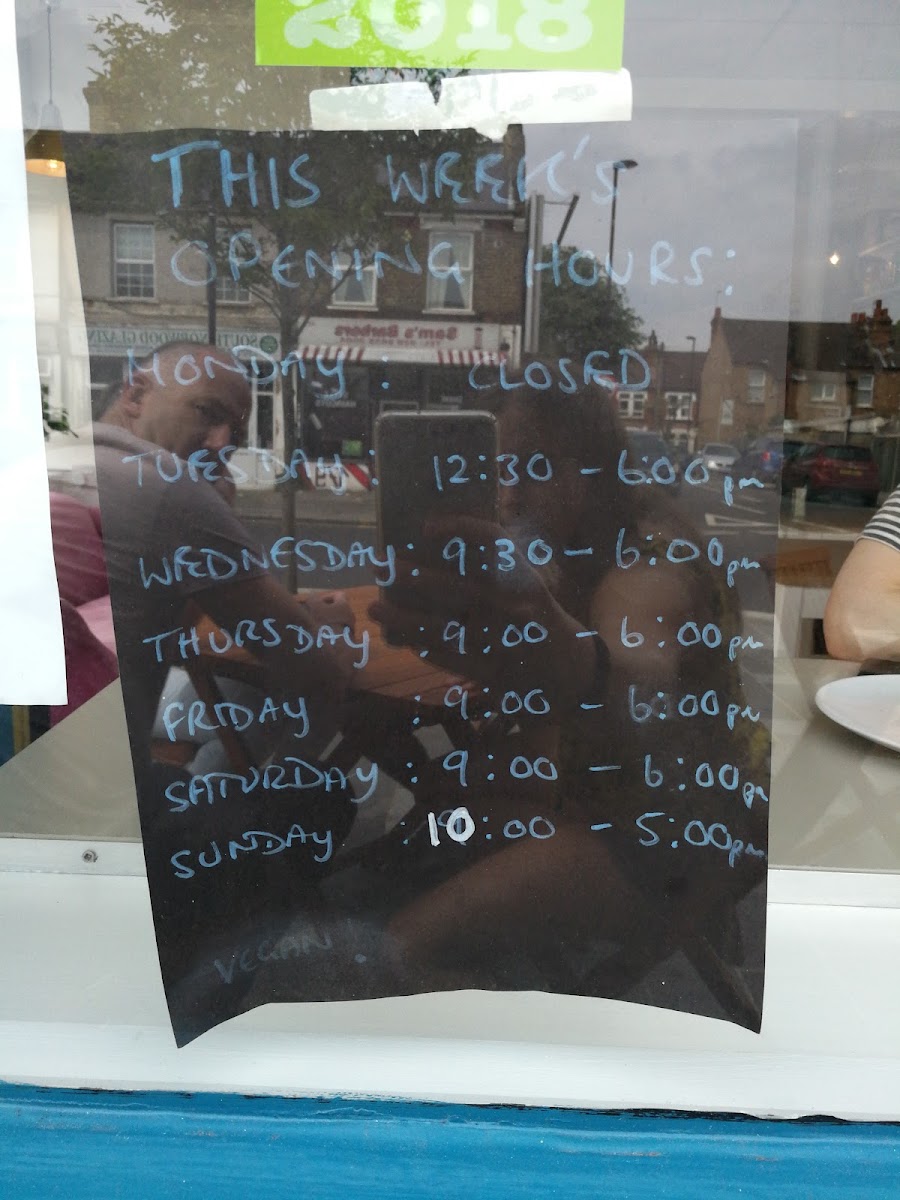 2018
THIS WEEK'S
OPENING HOURS:
MONDAY : CLOSED
TUESDAY : 12:30 – 6:00 pm
WEDNESDAY : 9:30 – 6:00 pm
THURSDAY : 9:00 – 6:00 pm
FRIDAY : 9:00 – 6:00 pm
SATURDAY : 9:00 – 6:00 pm
SUNDAY : 10:00 – 5:00 pm
VEGAN :
Sam's Barbers
NORWOOD GLAZIN